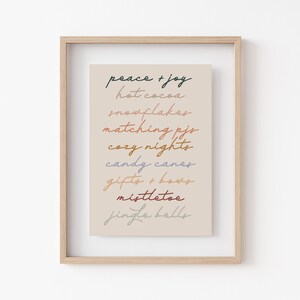 peace + joy
hot cocoa
snowflakes
matching pjs
cozy nights
candy canes
gifts + bows
mistletoe
jingle bells